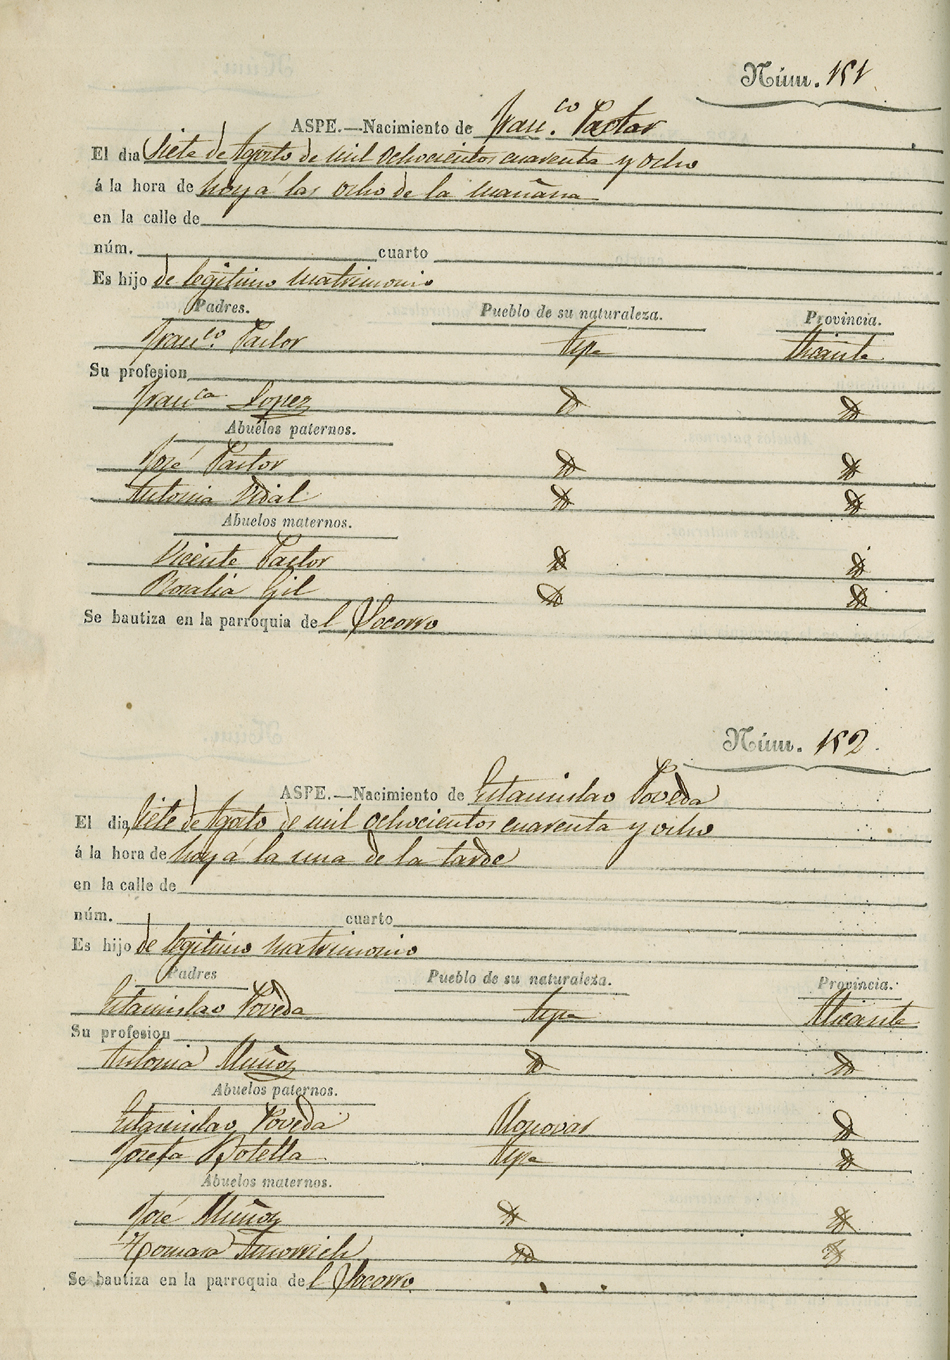 Núm. 151
ASPE.—Nacimiento de Fran.co Pastor
El dia Siete de Agosto de mil ochocientos cuarenta y ocho
á la hora de hoy á las ocho de la mañana
en la calle de
núm. cuarto
Es hijo de legitimo matrimonio
Padres. Pueblo de su naturaleza. Provincia.
Fran.co Pastor Aspe Alicante
Su profesion
Fran.ca Lopez
Abuelos paternos.
José Pastor
Antonia Vidal
Abuelos maternos.
Vicente Pastor
Rosalia Gil
Se bautiza en la parroquia del Socorro
Núm. 152
ASPE.—Nacimiento de Estanislao Poveda
El dia Siete de Agosto de mil ochocientos cuarenta y ocho
á la hora de hoy á la una de la tarde
en la calle de
núm. cuarto
Es hijo de legitimo matrimonio
Padres Pueblo de su naturaleza. Provincia.
Estanislao Poveda Aspe Alicante
Su profesion
Antonia Muñoz
Abuelos paternos.
Estanislao Poveda Monovar
Josefa Botella Aspe
Abuelos maternos.
José Muñoz
Se bautiza en la parroquia del Socorro